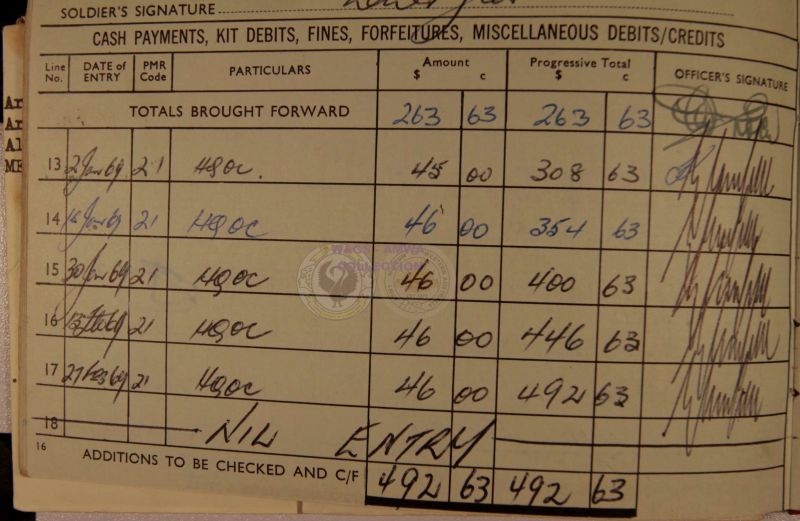 SOLDIER'S SIGNATURE
CASH PAYMENTS, KIT DEBITS, FINES, FORFEITURES, MISCELLANEOUS DEBITS/CREDITS
Line No. DATE of ENTRY PMR Code PARTICULARS Amount $ c Progressive Total $ c OFFICER'S SIGNATURE
TOTALS BROUGHT FORWARD 263 63 263 63
13 2 Jan 69 21 HQOC. 45 00 308 63
14 16 Jan 69 21 HQOC 46 00 354 63
15 30 Jan 69 21 HQOC 46 00 400 63
16 13 Feb 69 21 HQOC 46 00 446 63
17 27 Feb 69 21 HQOC 46 00 492 63
18 NIL ENTRY
16 ADDITIONS TO BE CHECKED AND C/F 492 63 492 63
Ar
Ar
Al
ME
COLLECTION